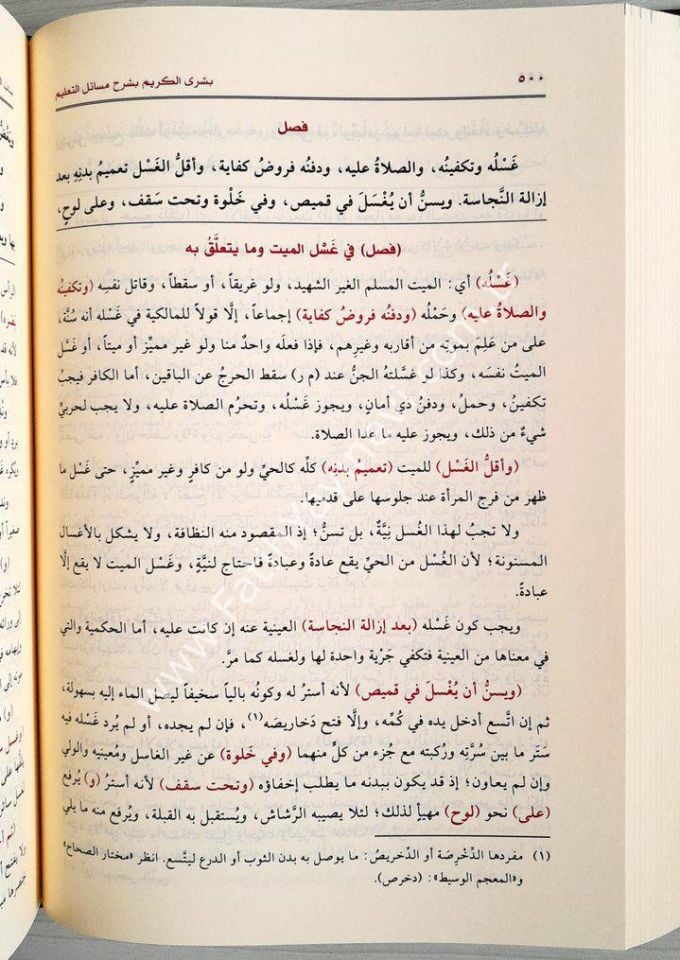 ٥٠٠ بشرى الكريم بشرح مسائل التعليم
فصل
غَسْلُه وتكفينُه، والصلاةُ عليه، ودفنُه فروضُ كفاية، وأقلُّ الغَسْل تعميمُ بدنِه بعد
إزالة النَّجاسة. ويسنُّ أن يُغْسَلَ في قميص، وفي خَلْوة وتحت سَقف، وعلى لوحٍ،
(فصل) في غَسْل الميت وما يتعلَّقُ به
(غَسْلُه) أي: الميت المسلم الغير الشهيد، ولو غريقاً، أو سقطاً، وقاتل نفسِه (وتكفينُه
والصلاةُ عليه) وحَمْلُه (ودفنُه فروض كفاية) إجماعاً، إلَّا قولاً للمالكية في غَسْله أنه سُنَّة،
على من عَلِمَ بموتِه من أقاربه وغيرِهم، فإذا فعلَه واحدٌ منا ولو غير مميِّز أو ميتاً، أو غَسَّل
الميتُ نفسَه، وكذا لو غسَّلتهُ الجنُّ عند (م ر) سقط الحرجُ عن الباقين، أما الكافر فيجبُ
تكفينُ، وحملُ، ودفنُ ذي أمانٍ، ويجوز غَسْلُه، وتحرُم الصلاة عليه، ولا يجب لحربيٍّ
شيءٌ من ذلك، ويجوز عليه ما عدا الصلاة.
(وأقلُّ الغَسْل) للميت (تعميمُ بدنِه) كلِّه كالحيِّ ولو من كافرٍ وغير مميِّزٍ، حتى غَسْل ما
ظهر من فرج المرأة عند جلوسها على قدميها.
ولا تجبُ لهذا الغُسل نِيَّةٌ، بل تسنُّ؛ إذ المقصود منه النظافة، ولا يشكل بالأغسال
المسنونة؛ لأن الغُسْل من الحيِّ يقع عادةً وعبادةً فاحتاج لنيَّةٍ، وغَسْل الميت لا يقع إلَّا
عبادةً.
ويجب كون غَسْله (بعد إزالة النجاسة) العينية عنه إن كانت عليه، أما الحكمية والتي
في معناها من العينية فتكفي جَرْية واحدة لها ولغسله كما مرَّ.
(ويسنُّ أن يُغْسلَ في قميص) لأنه أسترُ له وكونُه بالياً سخيفاً ليصل الماء إليه بسهولة،
ثم إن اتَّسع أدخل يده في كُمِّه، وإلَّا فتح دَخاريصَه(١)، فإن لم يجده، أو لم يُرد غَسْله فيه
سَتَر ما بين سُرَّتِه ورُكبتِه مع جزء من كلٍّ منهما (وفي خَلوة) عن غير الغاسل ومُعينِه والولي
وإن لم يعاون؛ إذ قد يكون ببدنه ما يطلب إخفاؤه (وتحت سقف) لأنه أسترُ (و) يُرفع
(على) نحو (لوح) مهيأ لذلك؛ لئلا يصيبه الرَّشاش، ويُستقبل به القبلة، ويُرفع منه ما يلي
(١) مفردها الدِّخْرِصَة أو الدِّخريصُ: ما يوصل به بدن الثوب أو الدرع ليتَّسع. انظر «مختار الصحاح»
و«المعجم الوسيط»: (دخرص).